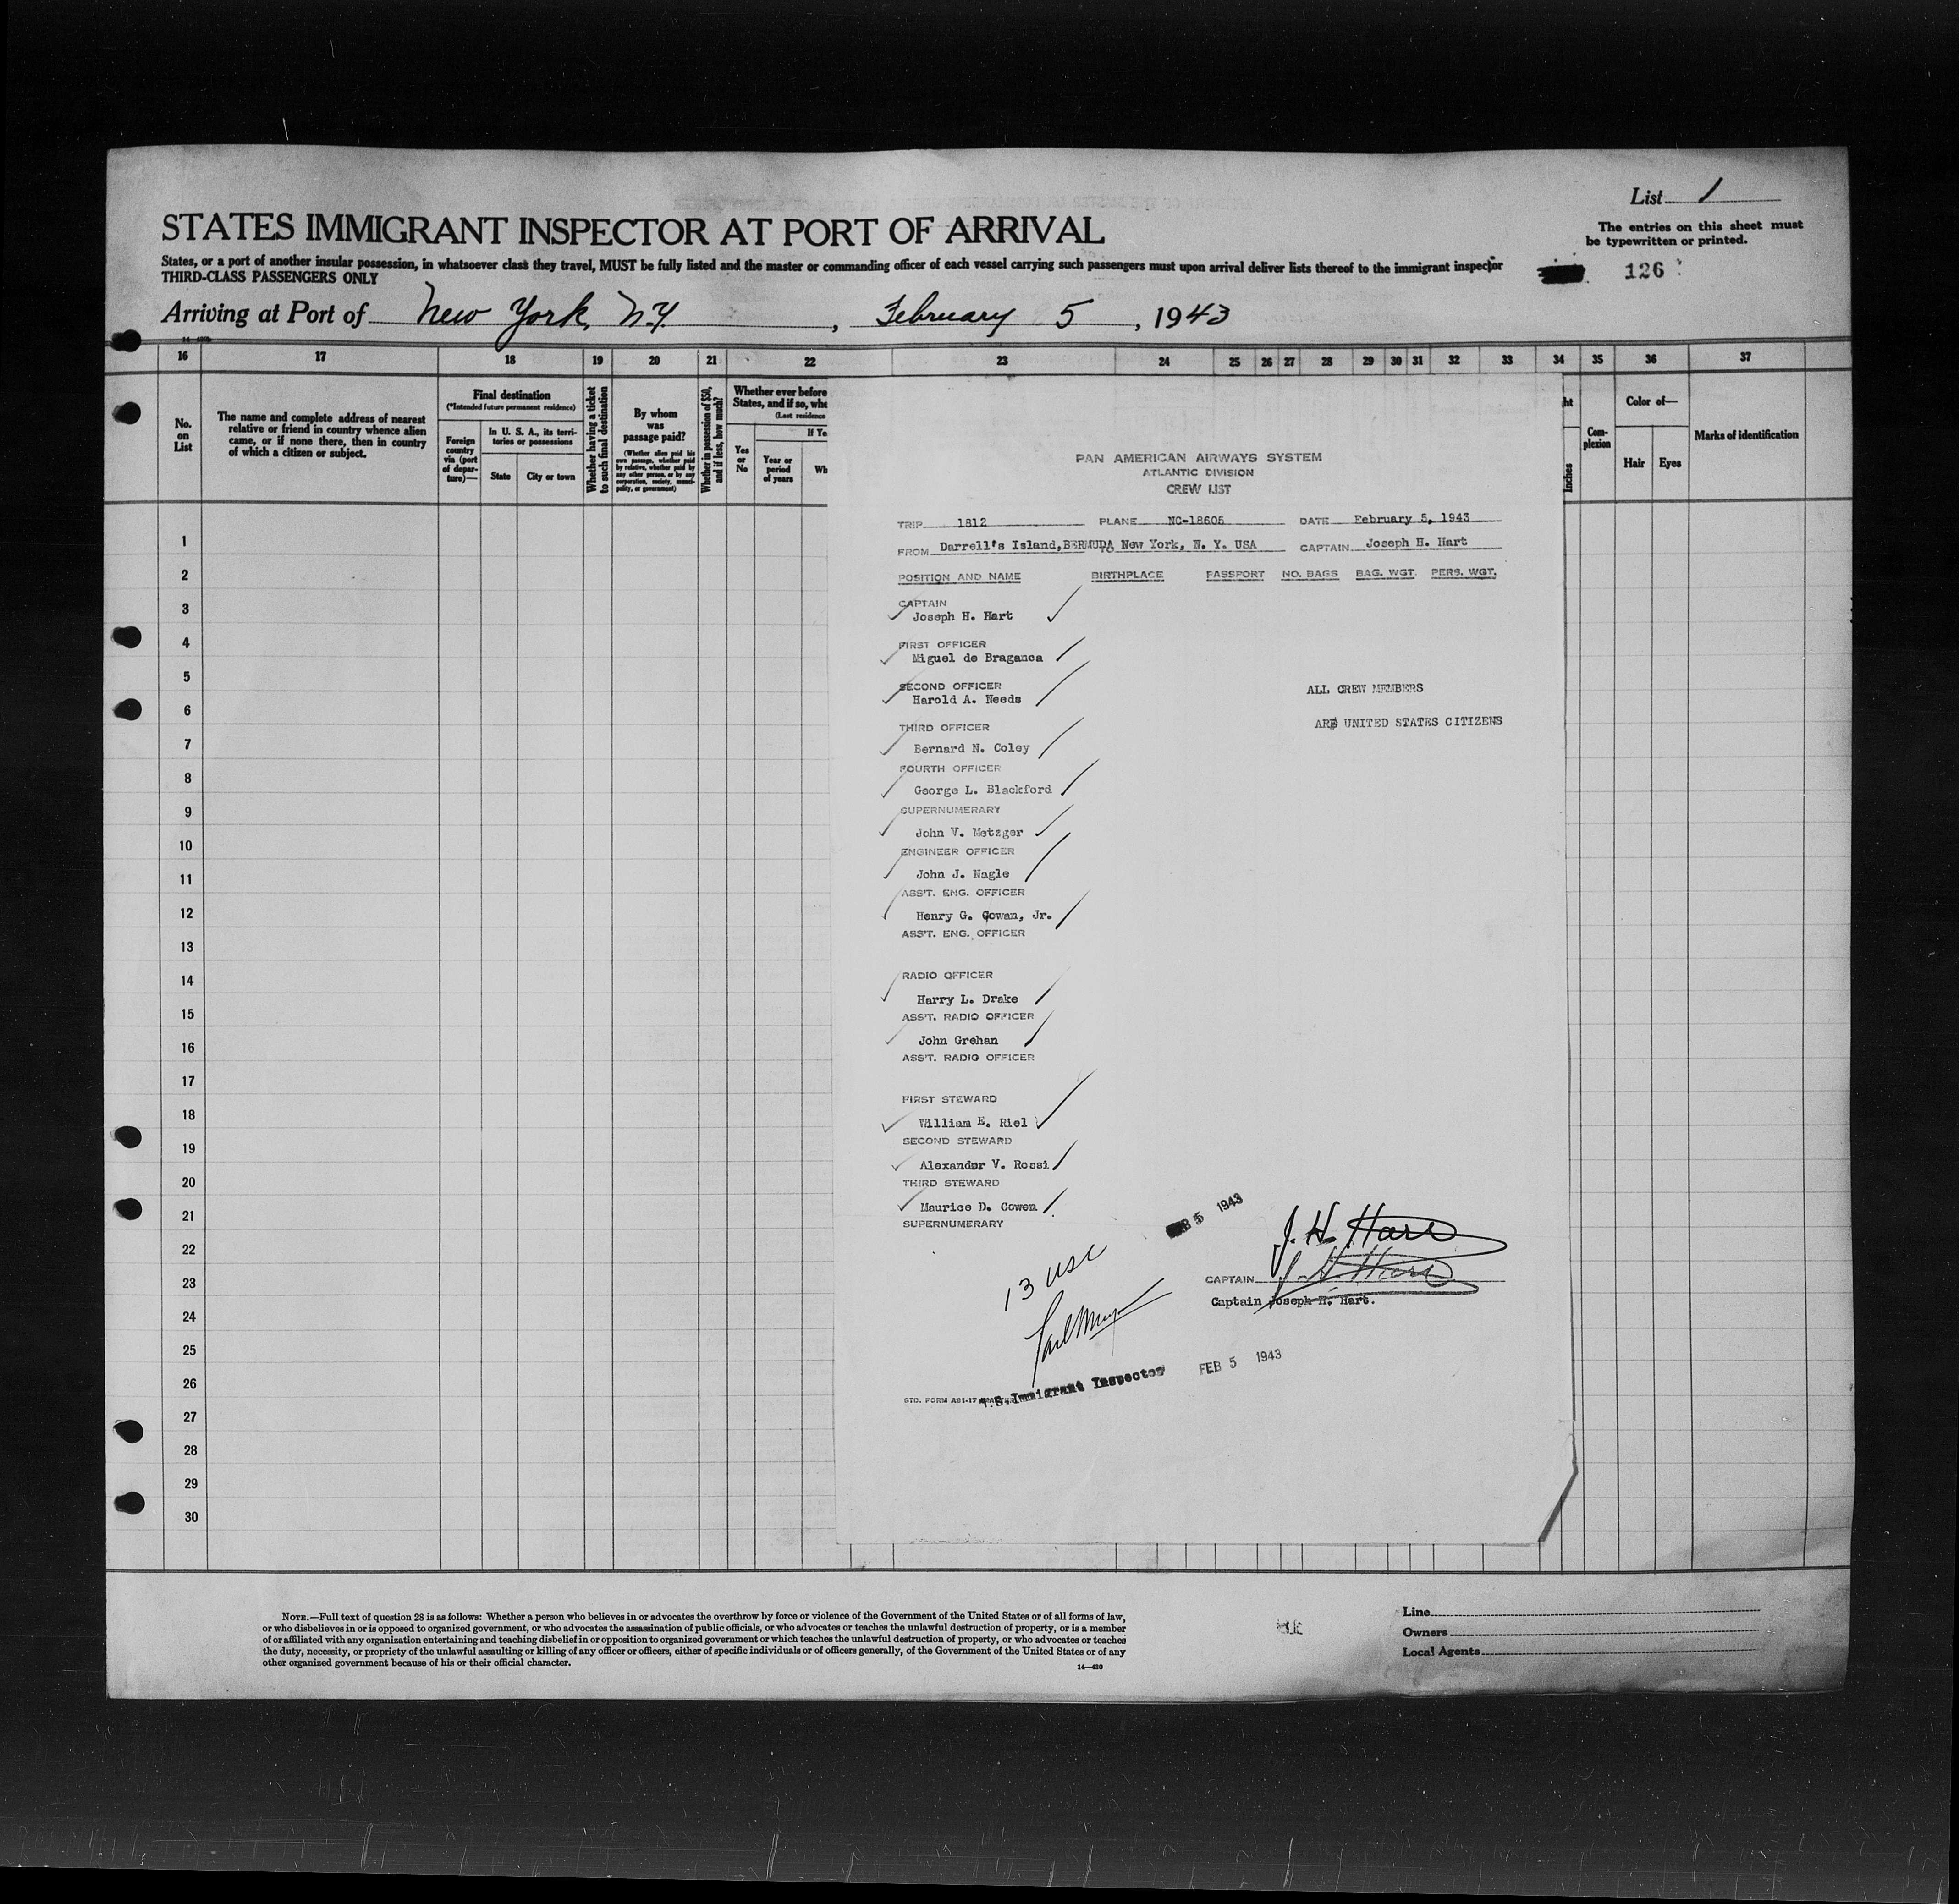 List 1
STATES IMMIGRANT INSPECTOR AT PORT OF ARRIVAL
The entries on this sheet must
be typewritten or printed.
States, or a port of another insular possession, in whatsoever class they travel, MUST be fully listed and the master or commanding officer of each vessel carrying such passengers must upon arrival deliver lists thereof to the immigrant inspector
THIRD-CLASS PASSENGERS ONLY
126
Arriving at Port of New York, N.Y. , February 5 , 1943
16 17 18 19 20 21 22 23 24 25 26 27 28 29 30 31 32 33 34 35 36 37
No.
on
List
The name and complete address of nearest
relative or friend in country whence alien
came, or if none there, then in country
of which a citizen or subject.
Final destination
(*Intended future permanent residence)
Foreign
country
via (port
of depar-
ture)—
In U. S. A., its terri-
tories or possessions
State
City or town
Whether having a ticket
to such final destination
By whom
was
passage paid?
(Whether alien paid his
own passage, whether paid
by relative, whether paid by
any other person, or by any
corporation, society, munici-
pality, or government)
Whether in possession of $50,
and if less, how much?
Whether ever before
States, and if so, whe
(Last residence
If Ye
Yes
or
No
Year or
period
of years
Wh
ht
Inches
Com-
plexion
Color of—
Hair
Eyes
Marks of identification
1
2
3
4
5
6
7
8
9
10
11
12
13
14
15
16
17
18
19
20
21
22
23
24
25
26
27
28
29
30
PAN AMERICAN AIRWAYS SYSTEM
ATLANTIC DIVISION
CREW LIST
TRIP 1812 PLANE NC-18605 DATE February 5, 1943
FROM Darrell's Island, BERMUDA TO New York, N. Y. USA CAPTAIN Joseph H. Hart
POSITION AND NAME BIRTHPLACE PASSPORT NO. BAGS BAG. WGT. PERS. WGT.
CAPTAIN
Joseph H. Hart
FIRST OFFICER
Miguel de Braganca
SECOND OFFICER
Harold A. Needs
ALL CREW MEMBERS
ARE UNITED STATES CITIZENS
THIRD OFFICER
Bernard N. Coley
FOURTH OFFICER
George L. Blackford
SUPERNUMERARY
John V. Metzger
ENGINEER OFFICER
John J. Nagle
ASS'T. ENG. OFFICER
Henry G. Cowan, Jr.
ASS'T. ENG. OFFICER
RADIO OFFICER
Harry L. Drake
ASS'T. RADIO OFFICER
John Grehan
ASS'T. RADIO OFFICER
FIRST STEWARD
William E. Riel
SECOND STEWARD
Alexander V. Rossi
THIRD STEWARD
Maurice D. Cowen
SUPERNUMERARY
5 1943
J. H. Hart
13 USC
CAPTAIN J. H. Hart
Captain Joseph H. Hart.
FEB 5 1943
STC. FORM
Immigrant Inspector
NOTE.—Full text of question 28 is as follows: Whether a person who believes in or advocates the overthrow by force or violence of the Government of the United States or of all forms of law,
or who disbelieves in or is opposed to organized government, or who advocates the assassination of public officials, or who advocates or teaches the unlawful destruction of property, or is a member
of or affiliated with any organization entertaining and teaching disbelief in or opposition to organized government or which teaches the unlawful destruction of property, or who advocates or teaches
the duty, necessity, or propriety of the unlawful assaulting or killing of any officer or officers, either of specific individuals or of officers generally, of the Government of the United States or of any
other organized government because of his or their official character.
14—430
Line
Owners
Local Agents